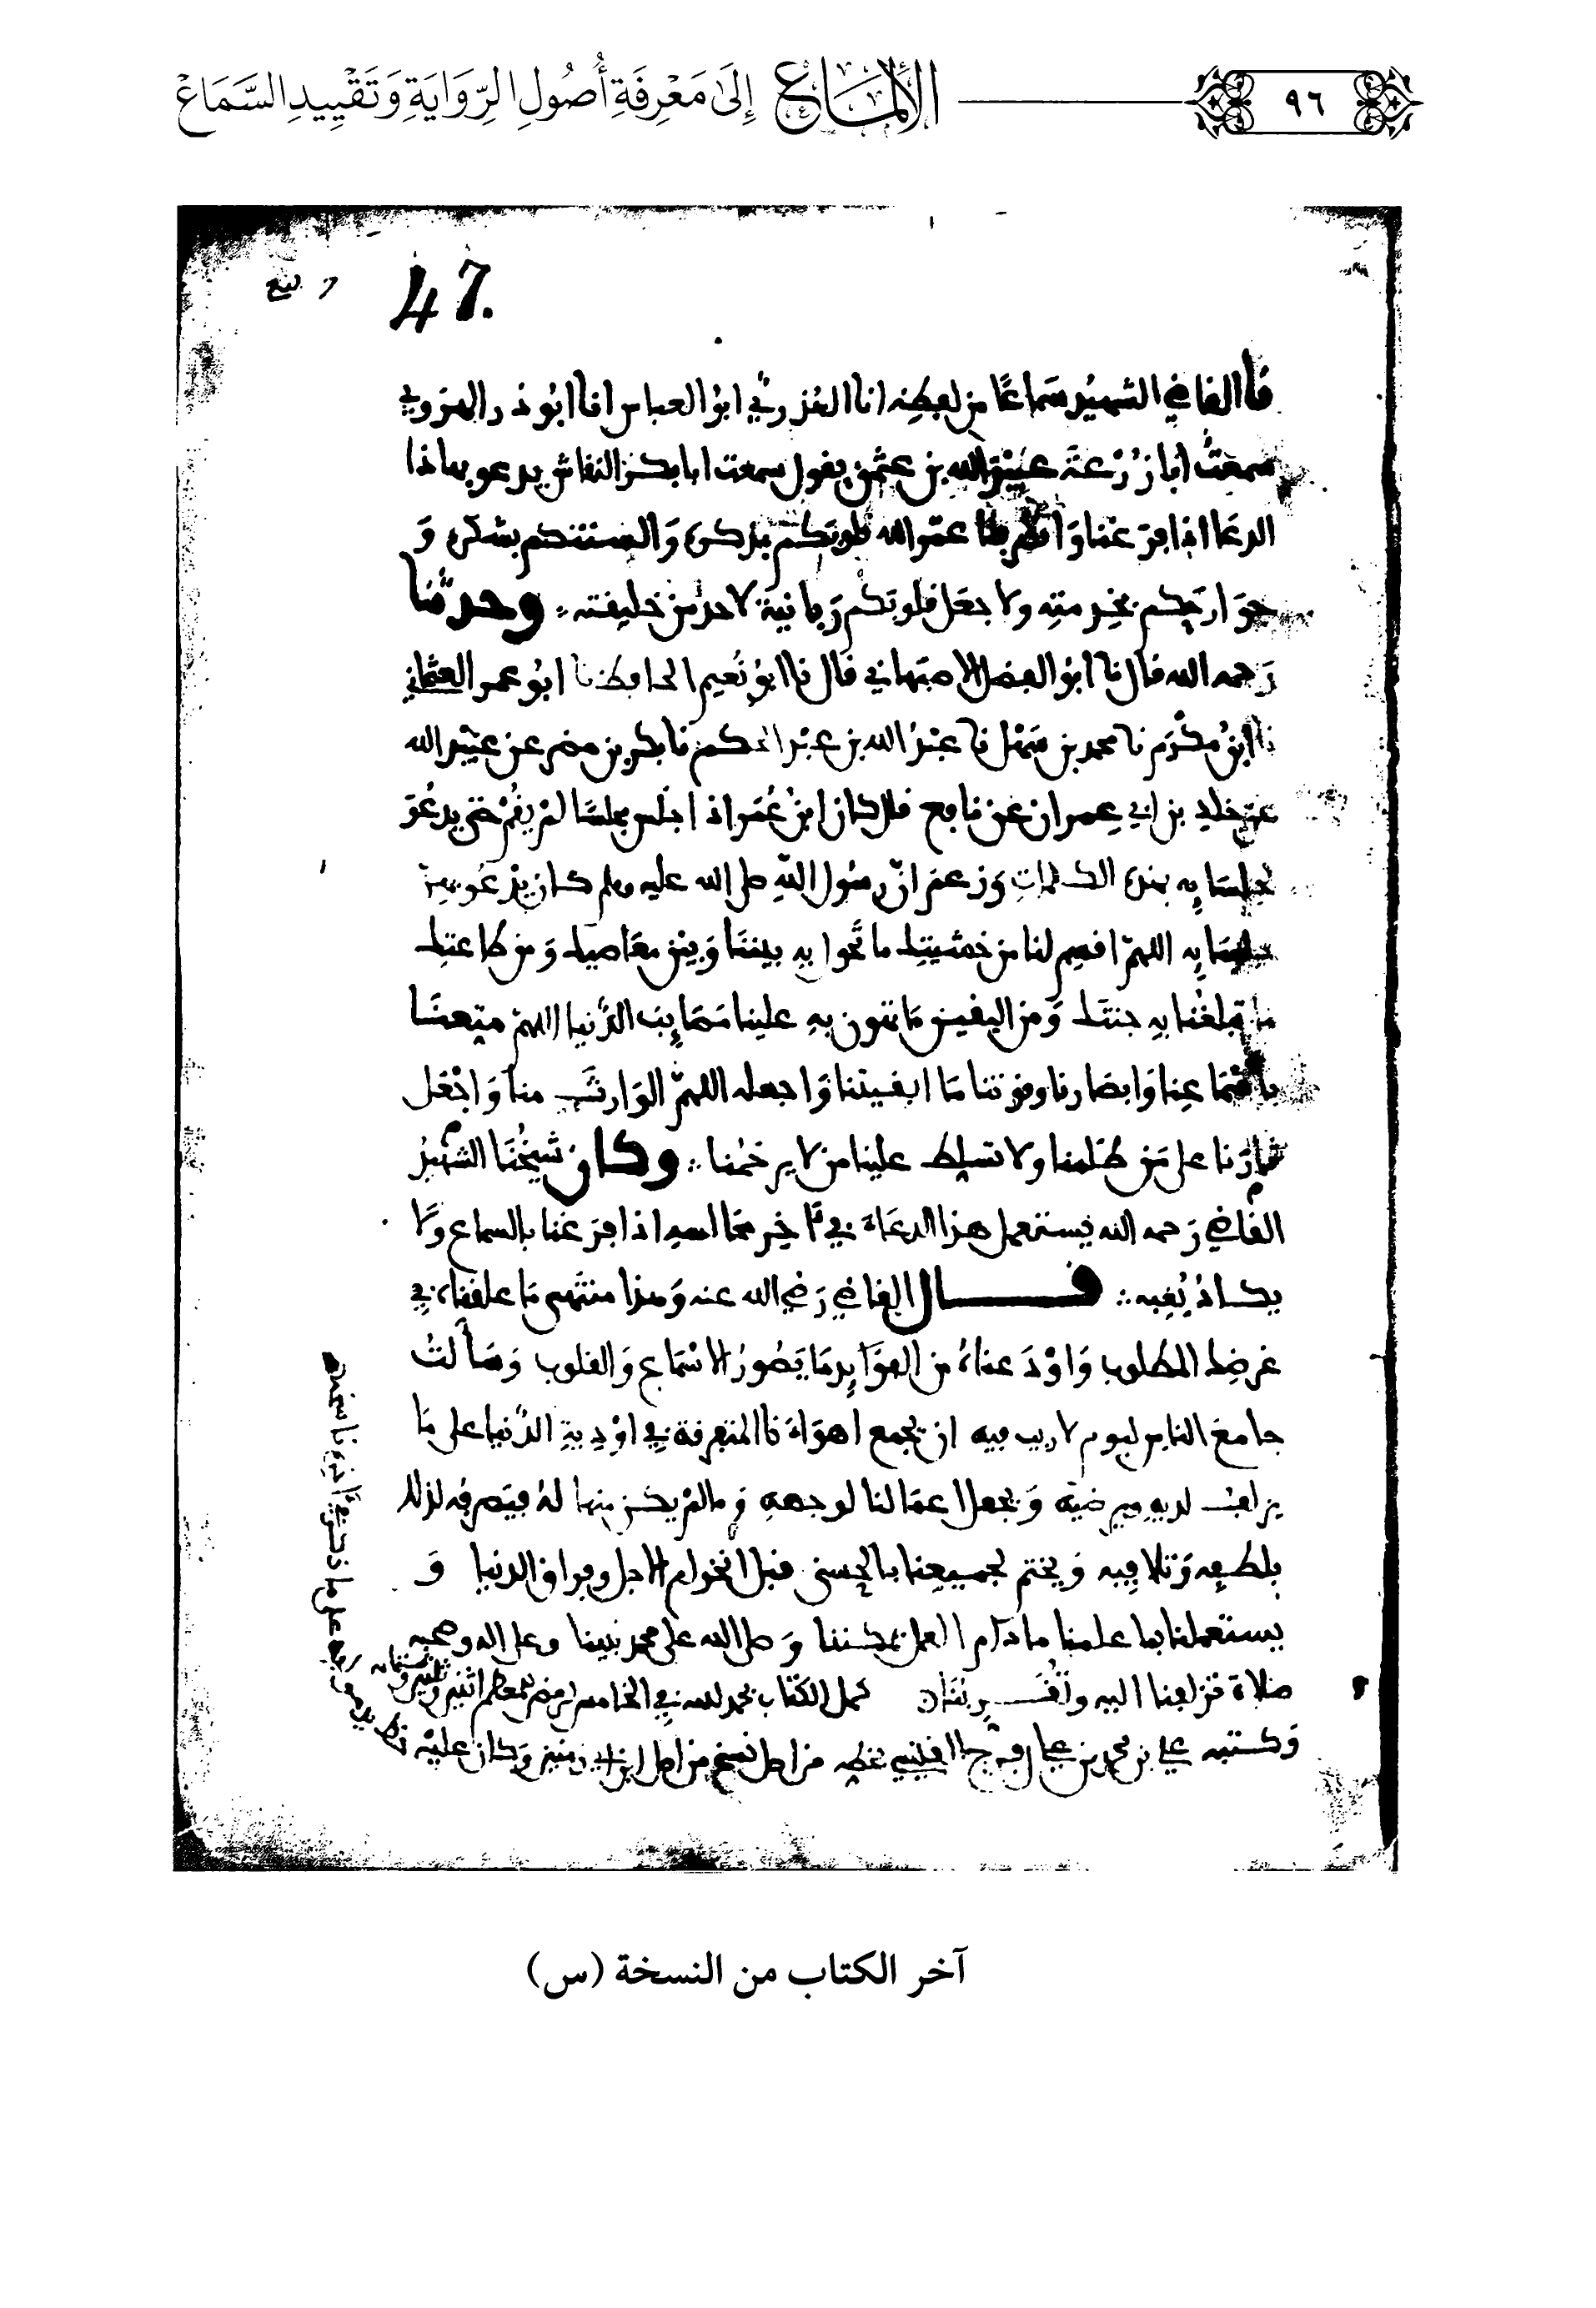 ٩٦
الإلماع إِلَى مَعْرِفَةِ أُصُولِ الرِّوَايَةِ وَتَقْيِيدِ السَّمَاعِ
47.
نا القاضي الشهيد سماعًا من لفظه انا العذري ابو العباس انا ابو ذر الهروي
سمعت ابا زُرْعَةَ عبيد الله بن عثمن يقول سمعت ابا بكر النقاش يدعو بهاذا
الدعا اذا فرغنا عمر الله قلوبكم بذكره وَالسنتكم بشكره وَ
جوارحكم بخدمته ولا جعل قلوبكم ربانية لاحد من خليقته وحدثنا
رَحمه الله قال نا ابو الفضل الاصبهاني قال نا ابو نُعيم الحافظ نا ابو عمر العثماني
نا ابن مكرم نا محمد بن سهل نا عبد الله بن عبد الحكم نا بكر بن مضر عن عبيد الله
عن خلد بن ابي عمران عن نافع قال كان ابن عُمَر اذا جلس مجلسًا لم يقم حتى يدعو
لجلسايه بهذه الكلمات وزعم انّ رسُول اللهِ صلى الله عليه وسلم كان يدعو بهن
لجلسايه اللهمّ اقسم لنا من خشيتك ما تحول به بيننا وَبين معاصيك وَمن طاعتك
ما تبلغنا بهِ جنتك وَمن اليقين مَا تهون بهِ علينا مصايب الدُّنيا اللهمّ متعنا
باسماعنا وَابصارنا وقوتنا مَا ابقيتنا وَاجعله اللهمّ الوارثَ منا وَاجْعَل
ثارنا على مَن ظلمنا ولا تسلط علينا من لا يرحمنا وكان شيخُنا الشهيدُ
القاضي رَحمه الله يستعمل هذا الدعَاءَ في ءاخر مجالسه اذا فرغنا بالسماع وَلا
يكادُ يُغِبه قال القاضي رَضي الله عنه وَهذا منتهى مَا علقناه في
غرضِك المطلوب وَاوْدَعناهُ من الفوَايد مَا يَصُورُ الاسْمَاع وَالقلوب وَسَالتُ
جامعَ الناس ليوم لا ريب فيه ان يجمع اهوَاءَنا المتفرقة في اوْدِيةِ الدُّنيا على مَا
يزلف لديه ويرضيه وَيجعل اعمالنا لوجهه وَما لمْ يكن منها لهُ فيصرفه لذلك
بلطفه وَتلافِيه وَيختم لجميعنا بالحسنى قبل انخرام الاجل وفراق الدنيا وَ
يستعملنا بما علمنا ما دَام العمل يمكننا وَصلى الله على محمد نبينا وعلى اله وصحبه
صلاة تزلفنا اليه وتُقَربنا كمل الكتاب بحمد لله في الخامس لرمضن المعظم اثنين وثلثين
وَكتبه علي بن محمد بن علي بخطه من اصل نسخ من اصل وَكان عليْه
آخر الكتاب من النسخة (س)